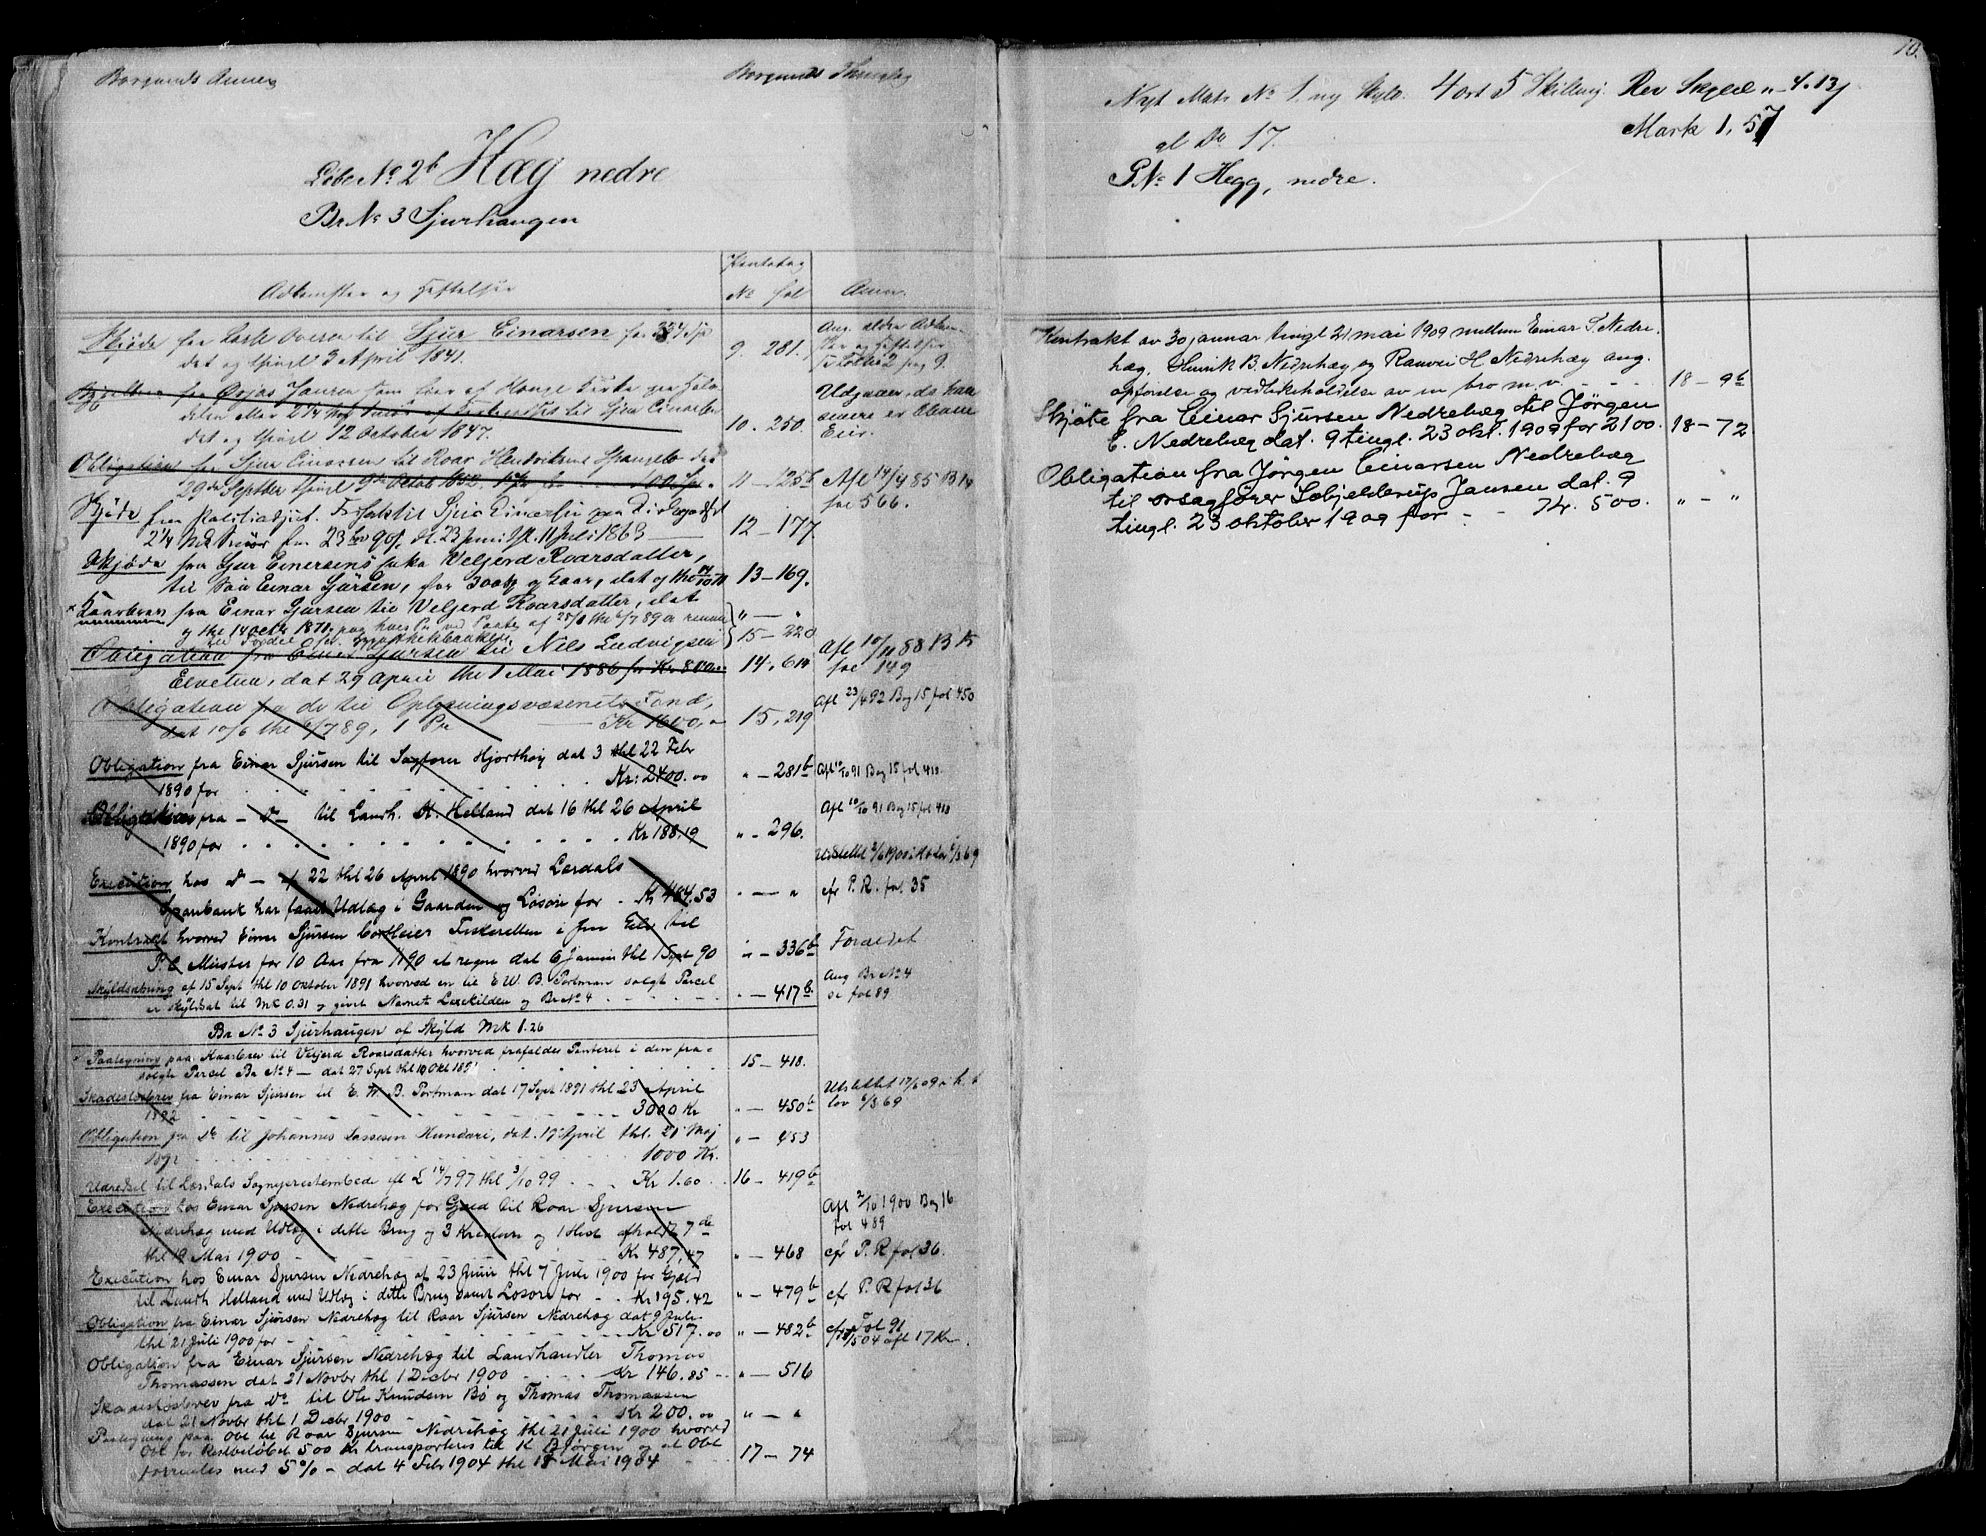 Borgunds Annex
Borgunds Thinglag
Løbe No 2b Hæg nedre
Br No 3 Sjurhaugen
Adkomster og Heftelser
Pantebog
No fol
Anm.
Skjøde fra Lasse Oversen til Sjur Einarsen for 324 Spd
det og thingl 3 April 1841.
9. 281.
Ang. ældre Adkom-
ster og Heftelser
til Løbe 2 pag 9.
dat og thingl 12 October 1847.
10. 250.
Udgaaer, da han
senere er bleven
Eier.
Obligation fra Sjur Einarsen til Roar Hendriksen Spangelo dat
29de Septber thingl
11 — 125b
Afl 14/4 85 B 14
fol 566.
Skjøde fra til Sjur Einarsen
2 1/4 Smør for 23 dl. 23 juni thl. 11 Juli 1863
12 — 177
Skjøde fra Sjur Einersens Enke Velgjerd Roarsdatter,
til Søn Einar Sjursen, for 300 Spd og Kaar, dat og thl 14/10 70
13 — 169.
× Kaarbrev fra Einar Sjursen til Velgjerd Roarsdatter, dat
og thl 14 octbr 1870.
" — "
15 — 220
Obligation fra Einar Sjursen til Nils Ludvigsen
Elvetun, dat 29 April thl 1 Mai 1886 for Kr 800..
14. 614
Afl 10/11 88 B 15
fol 149
Obligation fra do til Oplysningsvæsenets Fond,
dat 10/6 thl 6/7 89, 1 Pr Kr 1600,
15. 219
Afl 23/4 92 Bog 15 fol 450
Obligation fra Einar Sjursen til Sagfører Hjorthøy dat 3 thl 22 Febr
1890 for Kr: 2400.00
" — 281b
Afl 10/10 91 Bog 15 fol 418
Obligation fra — Do — til Landh. H. Helland dat 16 thl 26 April
1890 for Kr 188.19
" — 296.
Afl 10/10 91 Bog 15 fol 418
Execution hos do — af 22 thl 26 April 1890 hvorved Lærdals
Sparebank har faaet Udlæg i Gaarden og Løsøre for - Kr 484.53
" — "
cfr P. R. fol 35
Kontrakt hvorved Einar Sjursen bortleier Fiskeretten i fra Elv til
P. C. Münster for 10 Aar fra 1890 at regne dat 6 Januar thl 1 Sept 90
" — 336b
Forældet
Skyldsætning af 15 Sept thl 10 Oktober 1891 hvorved en til E. W. B. Portman solgt Parcel
er skyldsat til Mk 0.31 og givet Navnet Laxekilden og Br No 4
" — 417b
Ang Br No 4
se fol 89
Br No 3 Sjurhaugen af Skyld Mk 1.26
Paategning paa Kaarbrev til Velgjerd Roarsdatter hvorved frafaldes Panteret i den fra-
solgte Parcel Br No 4 — dat 27 Sept thl 10 Okt 1891
15 — 418.
Skadesløsbrev fra Einar Sjursen til E. W. B. Portman dat 17 Sept 1891 thl 23 April
1892 3000 Kr
" — 450b
Udslettet 17/6 09 i h. t.
lov 6/3 69
Obligation fra Do til Johannes Lassesen Hundari, dat. 19 April thl. 21 Maj
1892 1000 Kr.
" — 453
Udredsel til Lærdals Sogneprestembede afl 14/7 97 thl 3/10 99 Kr 1.60
16 — 419b
Execution hos Einar Sjursen Nedrehæg for Gjæld til Roar Sjursen
Nedrehæg med Udlæg i dette Brug og 3 Kreature og 1 Hest afholdt 7de
thl 19 Mai 1900 Kr 487,47
" — 468
Afl 2/10 1900 Bog 16
fol 489
cfr P. R fol 36.
Execution hos Einar Sjursen Nedrehæg af 23 Juni thl 7 Juli 1900 for Gjæld
til Landh Helland med Udlæg i dette Brug samt Løsøre for Kr 195.42
" — 479b
cfr P. R fol 36
Obligation fra Einar Sjursen Nedrehæg til Roar Sjursen Nedrehæg dat 9 Juli
thl 21 Juli 1900 for Kr 517.00
" — 482b
cfr Fol 91
Obligation fra Einar Sjursen Nedrehæg til Landhandler Thomas
Thomassen dat 21 Novbr thl 1 Decbr 1900 Kr 146.85
" — 516
Skadesløsbrev fra Do til Ole Knudsen Bø og Thomas Thomassen
dat 21 Novbr thl 1 Decbr 1900 Kr 200.00
" — "
Paategning paa Obl til Roar Sjursen Nedrehæg thl 21 Juli 1900 hvorved
Obl for Restbeløbet 500 Kr transporteres til K Bjørgen og at Obl
forrentes med 5% — dat 4 Febr 1904 thl 18 Mai 1904
17 — 74
10.
Nyt Matr No 1. ny Skyld. 4 ort 5 Skilling. Rev Skyld " 4. 13
gl Do 17.
Mark 1,57
G No 1 Hegg, nedre.
Kontrakt av 30 januar tingl 21 mai 1909 mellem Einar S. Nedre-
hæg, Henrik B. Nedrehæg og Ranvei H Nedrehæg ang.
opførelse og vedlikeholdelse av en bro m.v.
18 — 9b
Skjøte fra Einar Sjursen Nedrehæg til Jørgen
E. Nedrehæg dat. 9 tingl. 23 okt. 1909 for 2100.
18 — 72
Obligation fra Jørgen Einarsen Nedrehæg
til orsagfører Schjelderup Jansen dat. 9
tingl. 23 oktober 1909 for - - Kr. 500.
" - "